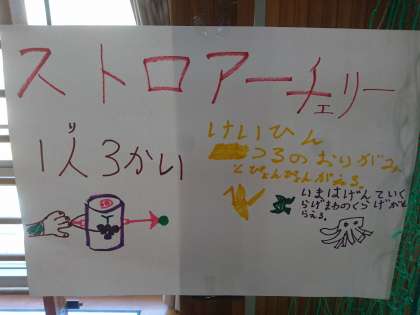 ストロアーチェリー
1人3かい
り
けいひん
つるのおりがみ
とぴょんぴょんがえる。
いまはげんていく
らげまわのくらげがも
らえる。